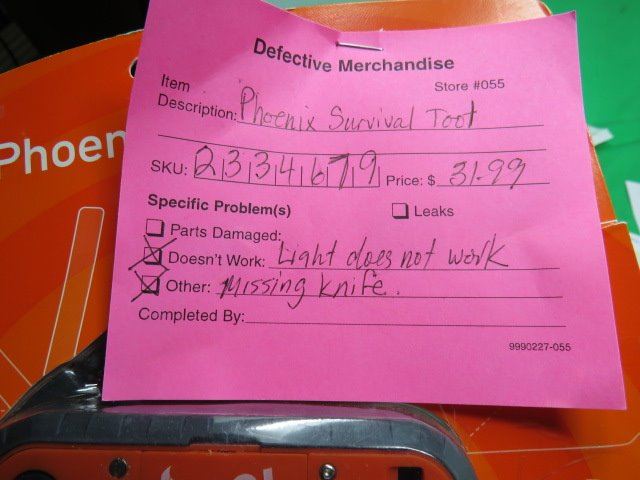 Defective Merchandise
Item Store #055
Description: Phoenix Survival Toot
SKU: 2334679 Price: $ 31.99
Specific Problem(s) Leaks
Parts Damaged:
Doesn't Work: Light does not work
Other: Missing knife.
Completed By:
9990227-055
Phoen